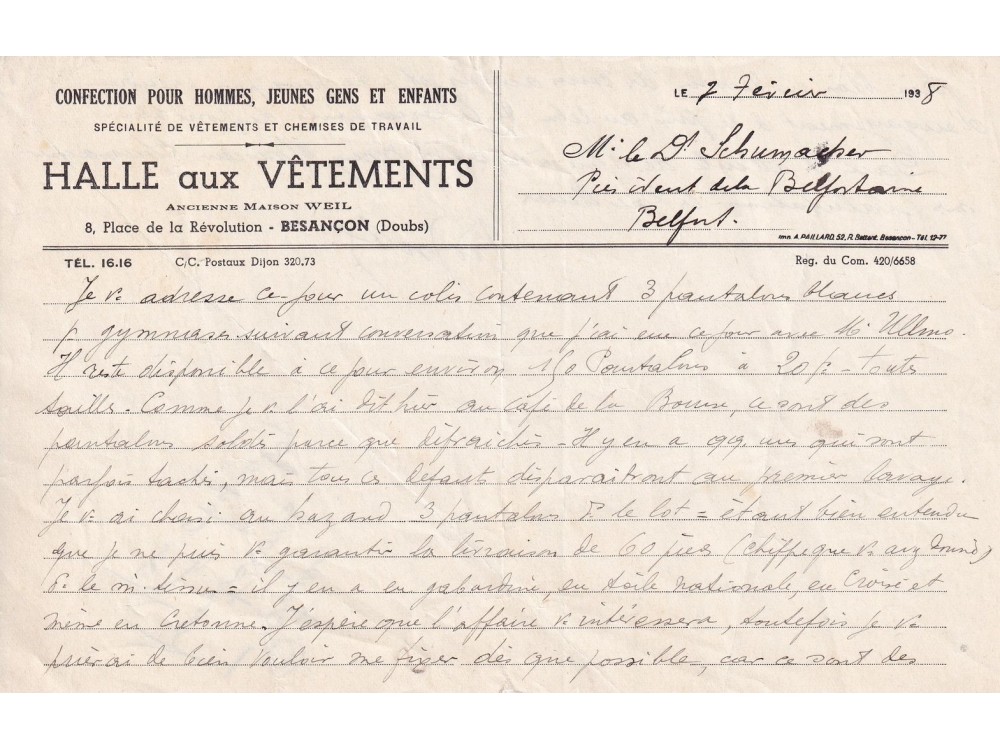 CONFECTION POUR HOMMES, JEUNES GENS ET ENFANTS
SPÉCIALITÉ DE VÊTEMENTS ET CHEMISES DE TRAVAIL
HALLE aux VÊTEMENTS
ANCIENNE MAISON WEIL
8, Place de la Révolution - BESANÇON (Doubs)
LE 2 Février 1938
Mr le Dr Schumacher
Président de la Belfortaine
Belfort.
Imp. A. PAILLARD, 52, R. Battant, Besançon - Tél. 12-77
TÉL. 16.16 C/C. Postaux Dijon 320.73 Reg. du Com. 420/6658
Je v. adresse ce jour un colis contenant 3 pantalons blancs
p. gymnases suivant conversation que j'ai eue ce jour avec Mr Ullmo.
Il reste disponible à ce jour environ 150 Pantalons à 20 f. - toutes
tailles. Comme je v. l'ai dit hier au café de la Bourse, ce sont des
pantalons soldés parce que défraîchis - Il y en a qq. uns qui sont
parfois tachés, mais tous ces défauts disparaitront au premier lavage.
Je v. ai choisi au hazard 3 pantalons s. le lot = étant bien entendu
que je ne puis v. garantir la livraison de 60 pièces (chiffre que v. avez donné)
d. le m. tissu = il y en a en gabardine, en toile nationale, en Croisé et
même en Cretonne. J'espère que l'affaire v. intéressera, toutefois je v.
prierai de bien vouloir me fixer dès que possible, car ce sont des